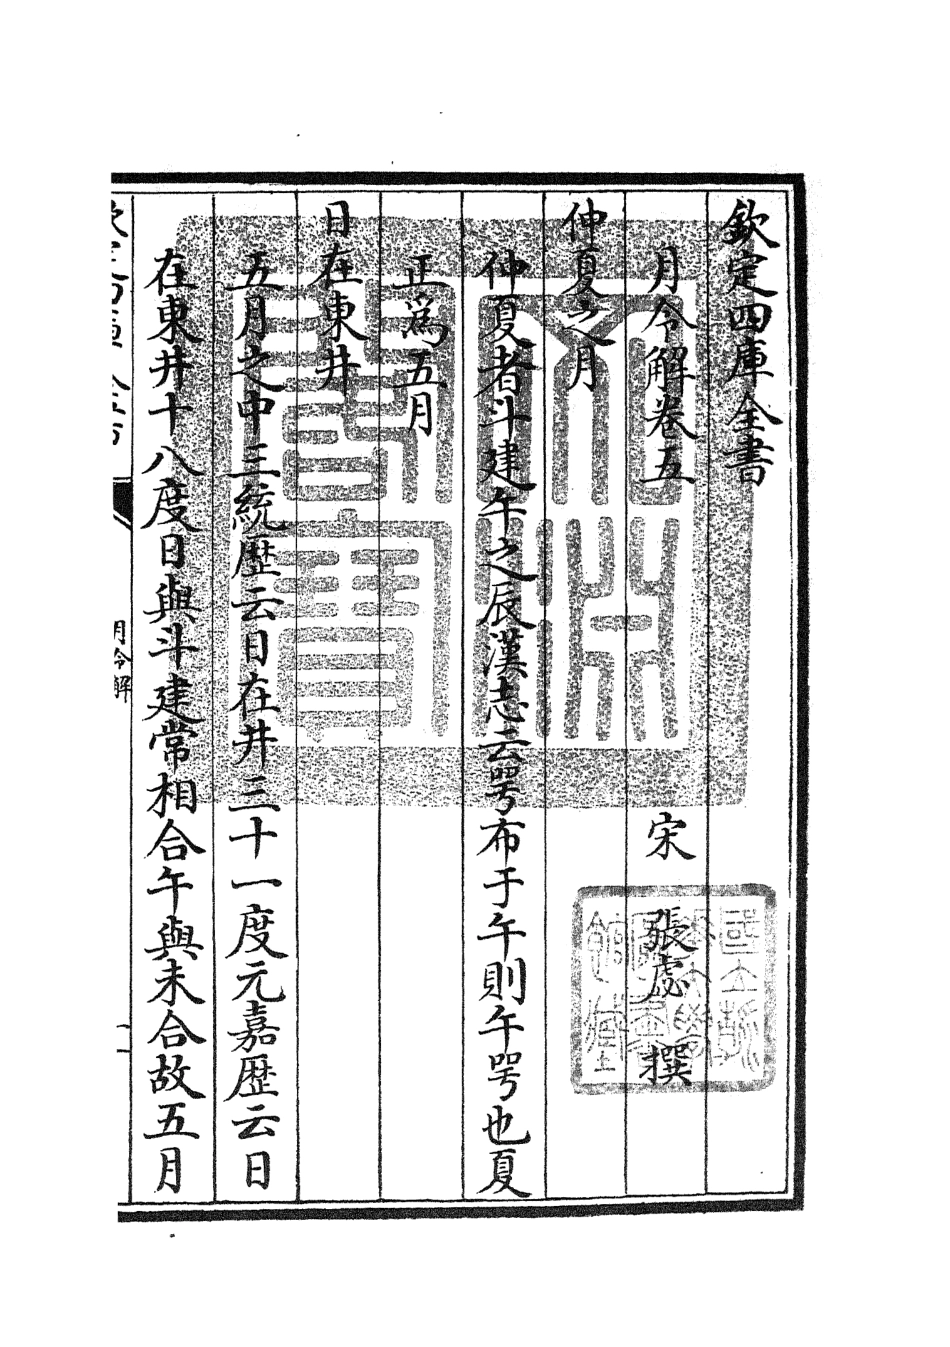 欽定四庫全書
月令解卷五
宋 張虙 撰
仲夏之月
仲夏者斗建午之辰漢志云咢布于午則午咢也夏
正為五月
日在東井
五月之中三統歴云日在井三十一度元嘉歴云日
在東井十八度日與斗建常相合午與未合故五月
月令解
一